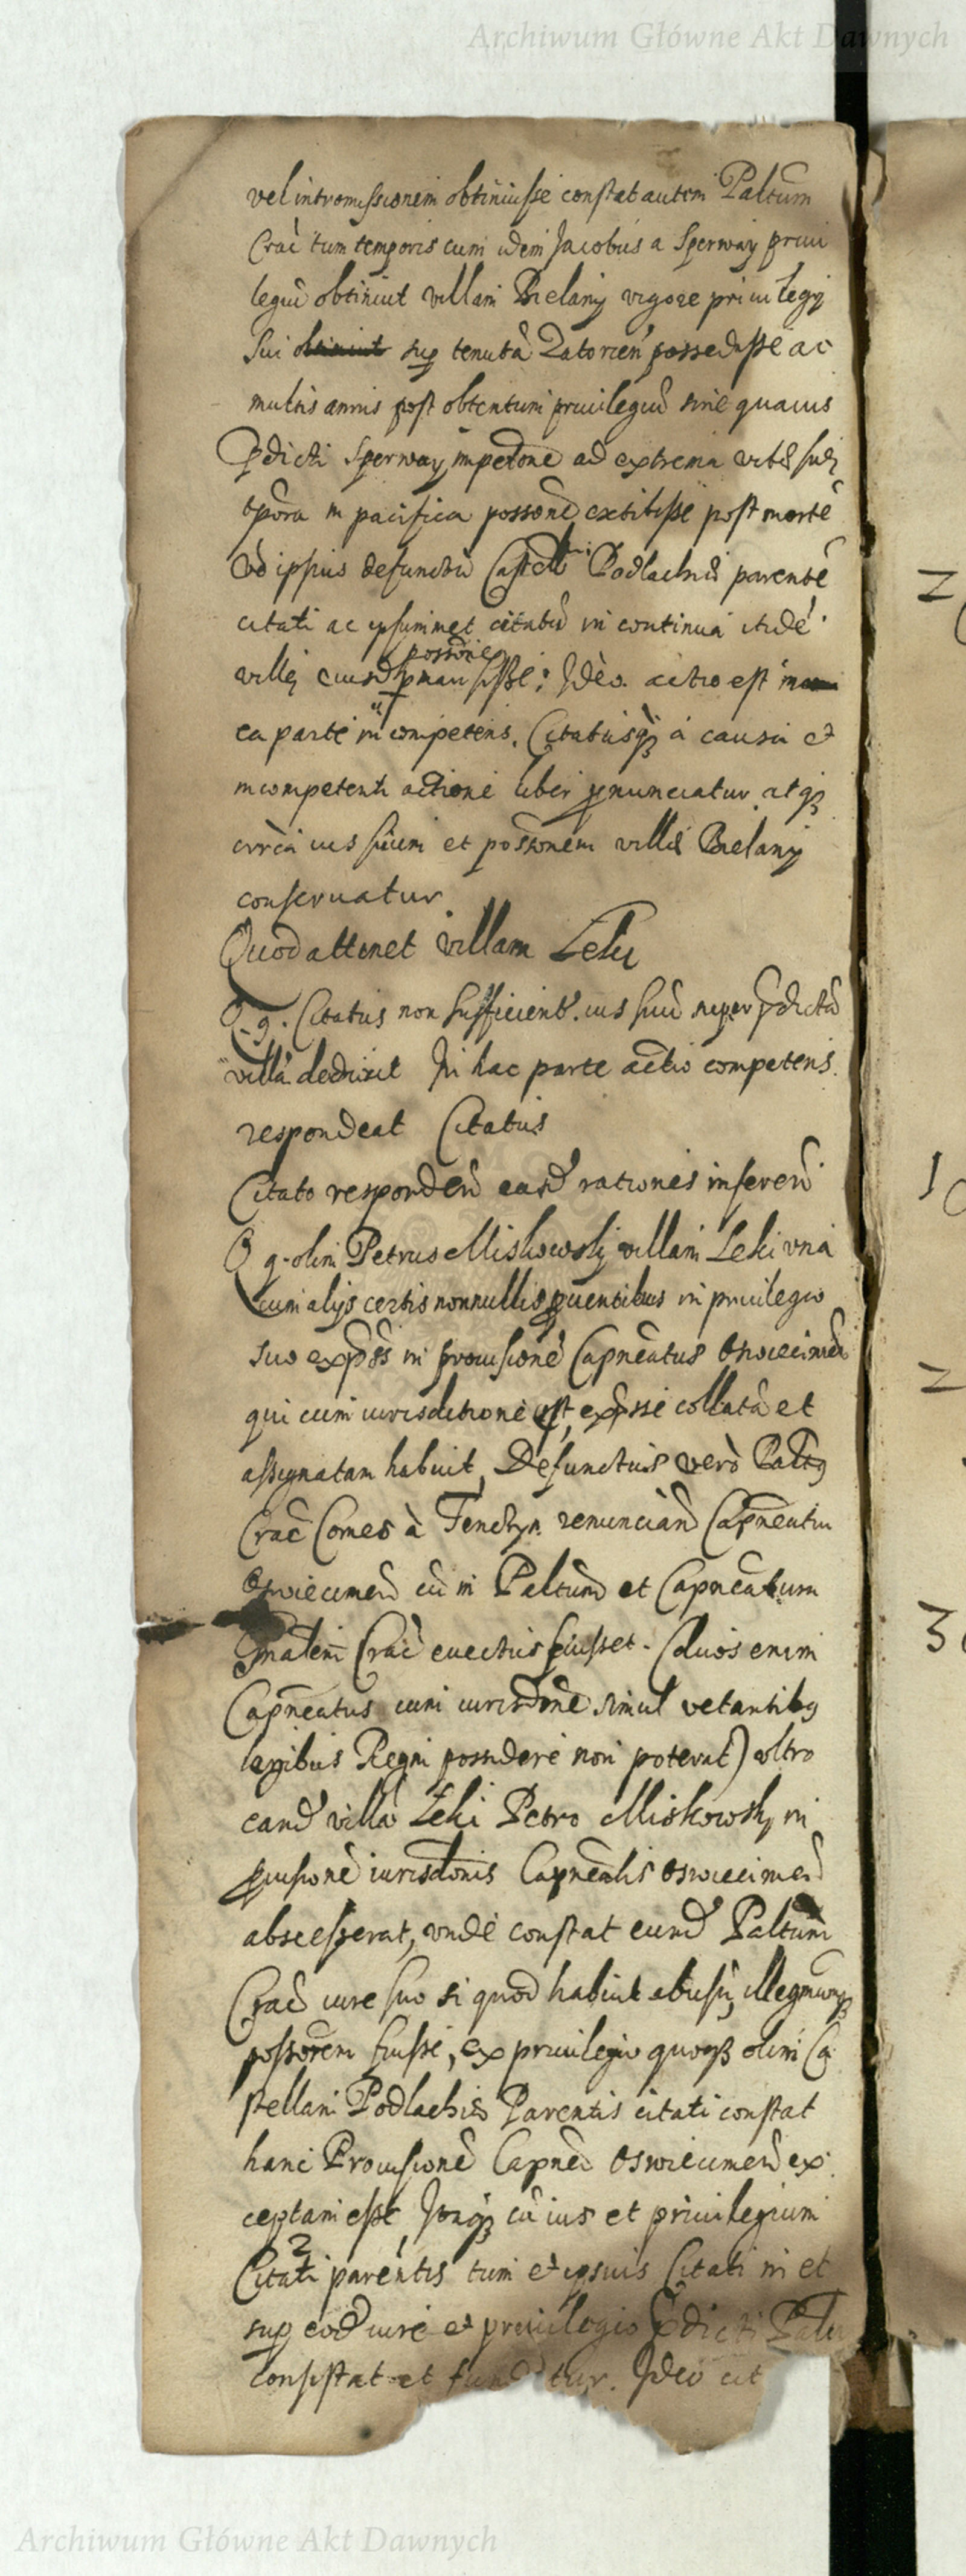 Archiwum Główne Akt Dawnych
vel intromissionem obtinuisse constat autem Paltum
Crac̃ tum temporis cum idem Jacobus a Sperway priui
legiũ obtinuit villam Bielany vigore priuilegij
sui obtinuit sup tenutã Zatorien̄ possedisse ac
multis annis post obtentum priuilegiũ sine quauis
P̃dicti Sperway impetõne ad extrema vitę suę
tp̃ora in pacifica possone extitisse post mortẽ
vo ipsius defuncti Castellani Podlachię parentẽ
citati ac ipsummet citatũ in continua itidẽ
villę eiusd possone pmansisse: Ideo actio est
ea parte incompetens. Citatusq; a causa et
incompetenti actione liber pnunciatur atq;
circa ius suum et possonem villę Bielany
conseruatur
Quod attinet villam Leki
Q. g. Citatus non sufficient. ius suũ super p̃dictã
villã deduxit In hac parte actio competens
respondeat Citatus
Citato responden easd rationes inseren
Q g. olim Petrus Miskowsky villam Leki vna
cum alijs certis nonnullis puentibus in priuilegio
suo exp̃ss in prouisionẽ Capneatus Oswiecimen
qui cum iurisditione est, exp̃sse collatã et
assignatam habuit, Defunctus verò Paltus
Crac̃ Comes à Tenczyn renuncian Capneatui
Oswiecimen cũ in Paltum et Capneatum
Gnalem Crac̃ euectus fuisset. (duos enim
Capneatus cum iurisdone simul vetantibus
legibus Regni possidere non poterat) vltro
eand villã Leki Petro Miskowsky in
puisionẽ iurisdonis Capnealis Oswiecimen
abscesserat, vnde constat eund Paltum
Crac̃ iure suo si quod habuit abusũ, illegitimumq;
possorem fuisse, ex priuilegio quoq; olim Ca
stellani Podlachię Parentis citati constat
hanc Prouisionẽ Capnea Oswiecimen ex
ceptam esse, Itaq; cũ ius et priuilegium
Citati parentis tum et ipsius Citati in et
sup eod iure et priuilegio p̃dicti Palti
consistat et fundetur. Ideo cit
Archiwum Główne Akt Dawnych